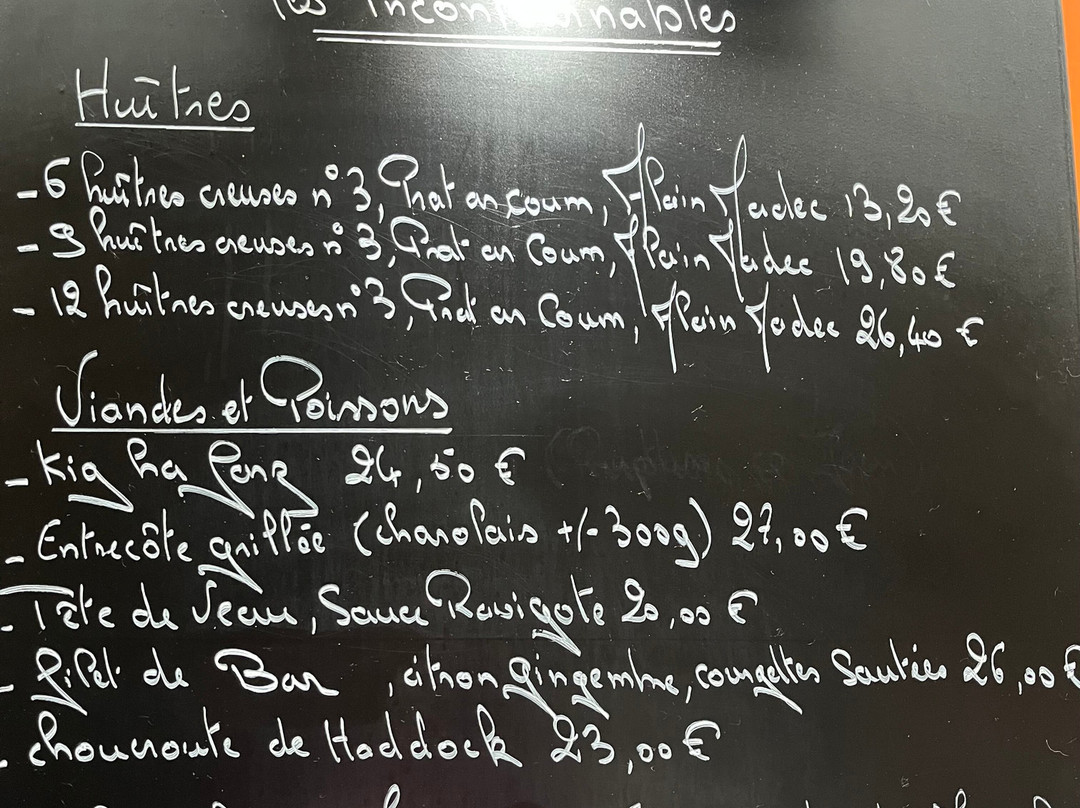 les incontournables
Huîtres
- 6 huîtres creuses n°3, Prat ar coum, Alain Madec 13,20€
- 9 huîtres creuses n°3, Prat ar Coum, Alain Madec 19,80€
- 12 huîtres creuses n°3, Prat ar Coum, Alain Madec 26,40 €
Viandes et Poissons
- Kig ha farz 24,50 €
- Entrecôte grillée (charolais +/- 300g) 27,00€
- Tête de Veau, Sauce Ravigote 20,00 €
- filet de Bar , citron gingembre, courgettes Sautées 26,00€
- choucroute de Haddock 23,00€